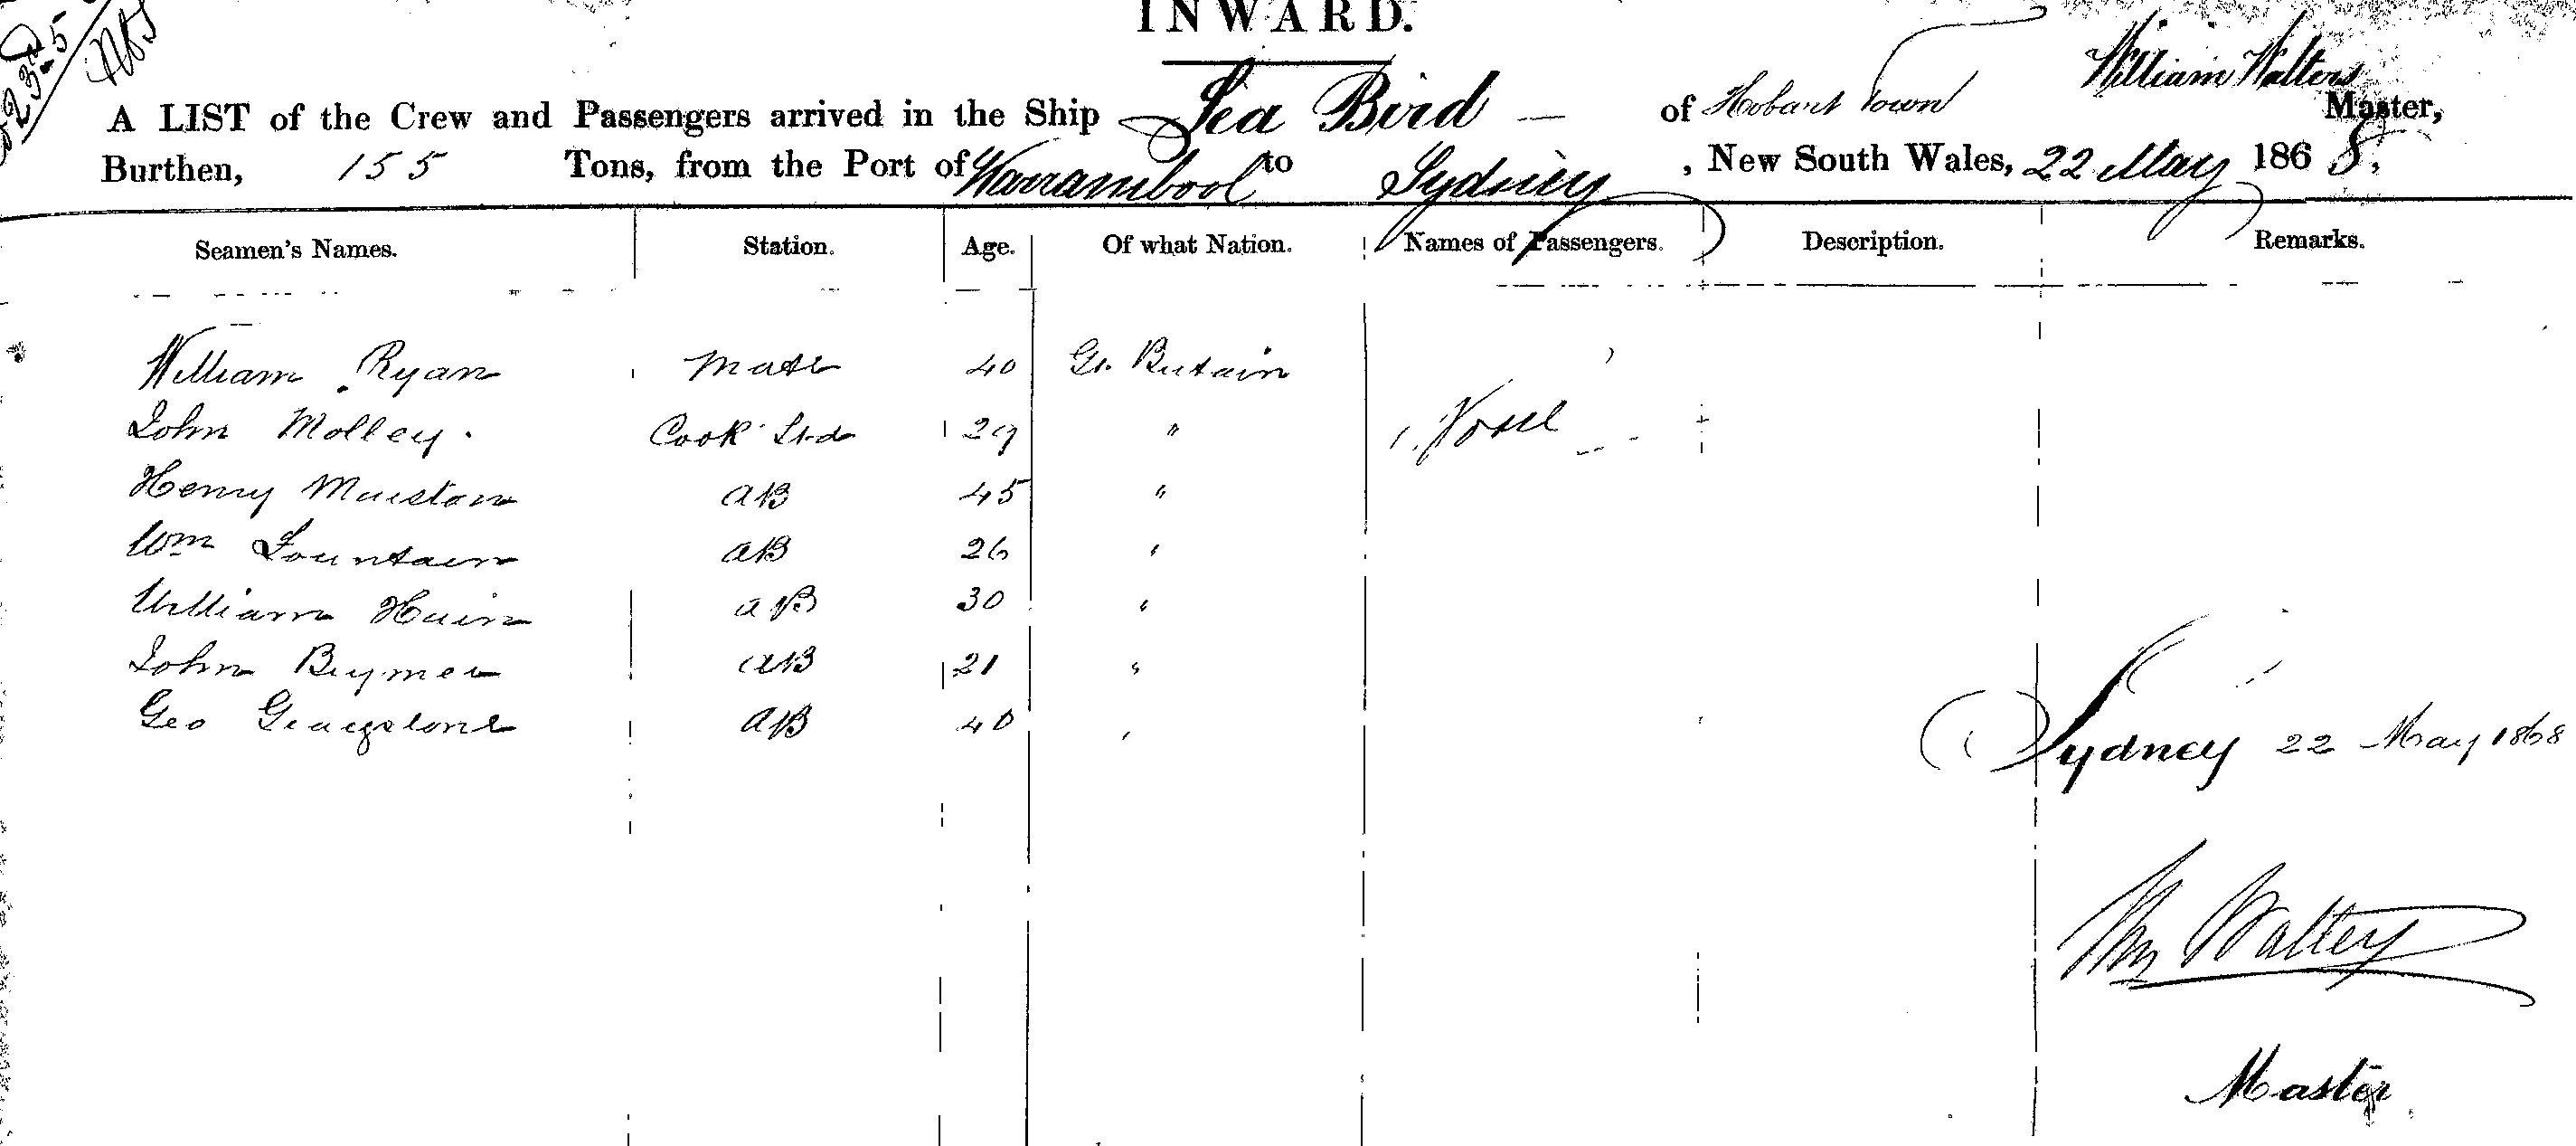 INWARD.
A LIST of the Crew and Passengers arrived in the Ship Sea Bird — of Hobart Town William Walters Master,
Burthen, 155 Tons, from the Port of Warrambool to Sydney, New South Wales, 22 May 1868.
Seamen's Names. Station. Age. Of what Nation. Names of Passengers. Description. Remarks.
William Ryan Mate 40 Gt. Britain
John Molley. Cook Std 29 "
Henry AB 45 "
Wm Fountain AB 26 "
William AB 30 "
John AB 21 "
Geo AB 40 "
Sydney 22 May 1868
Wm Walters
Master